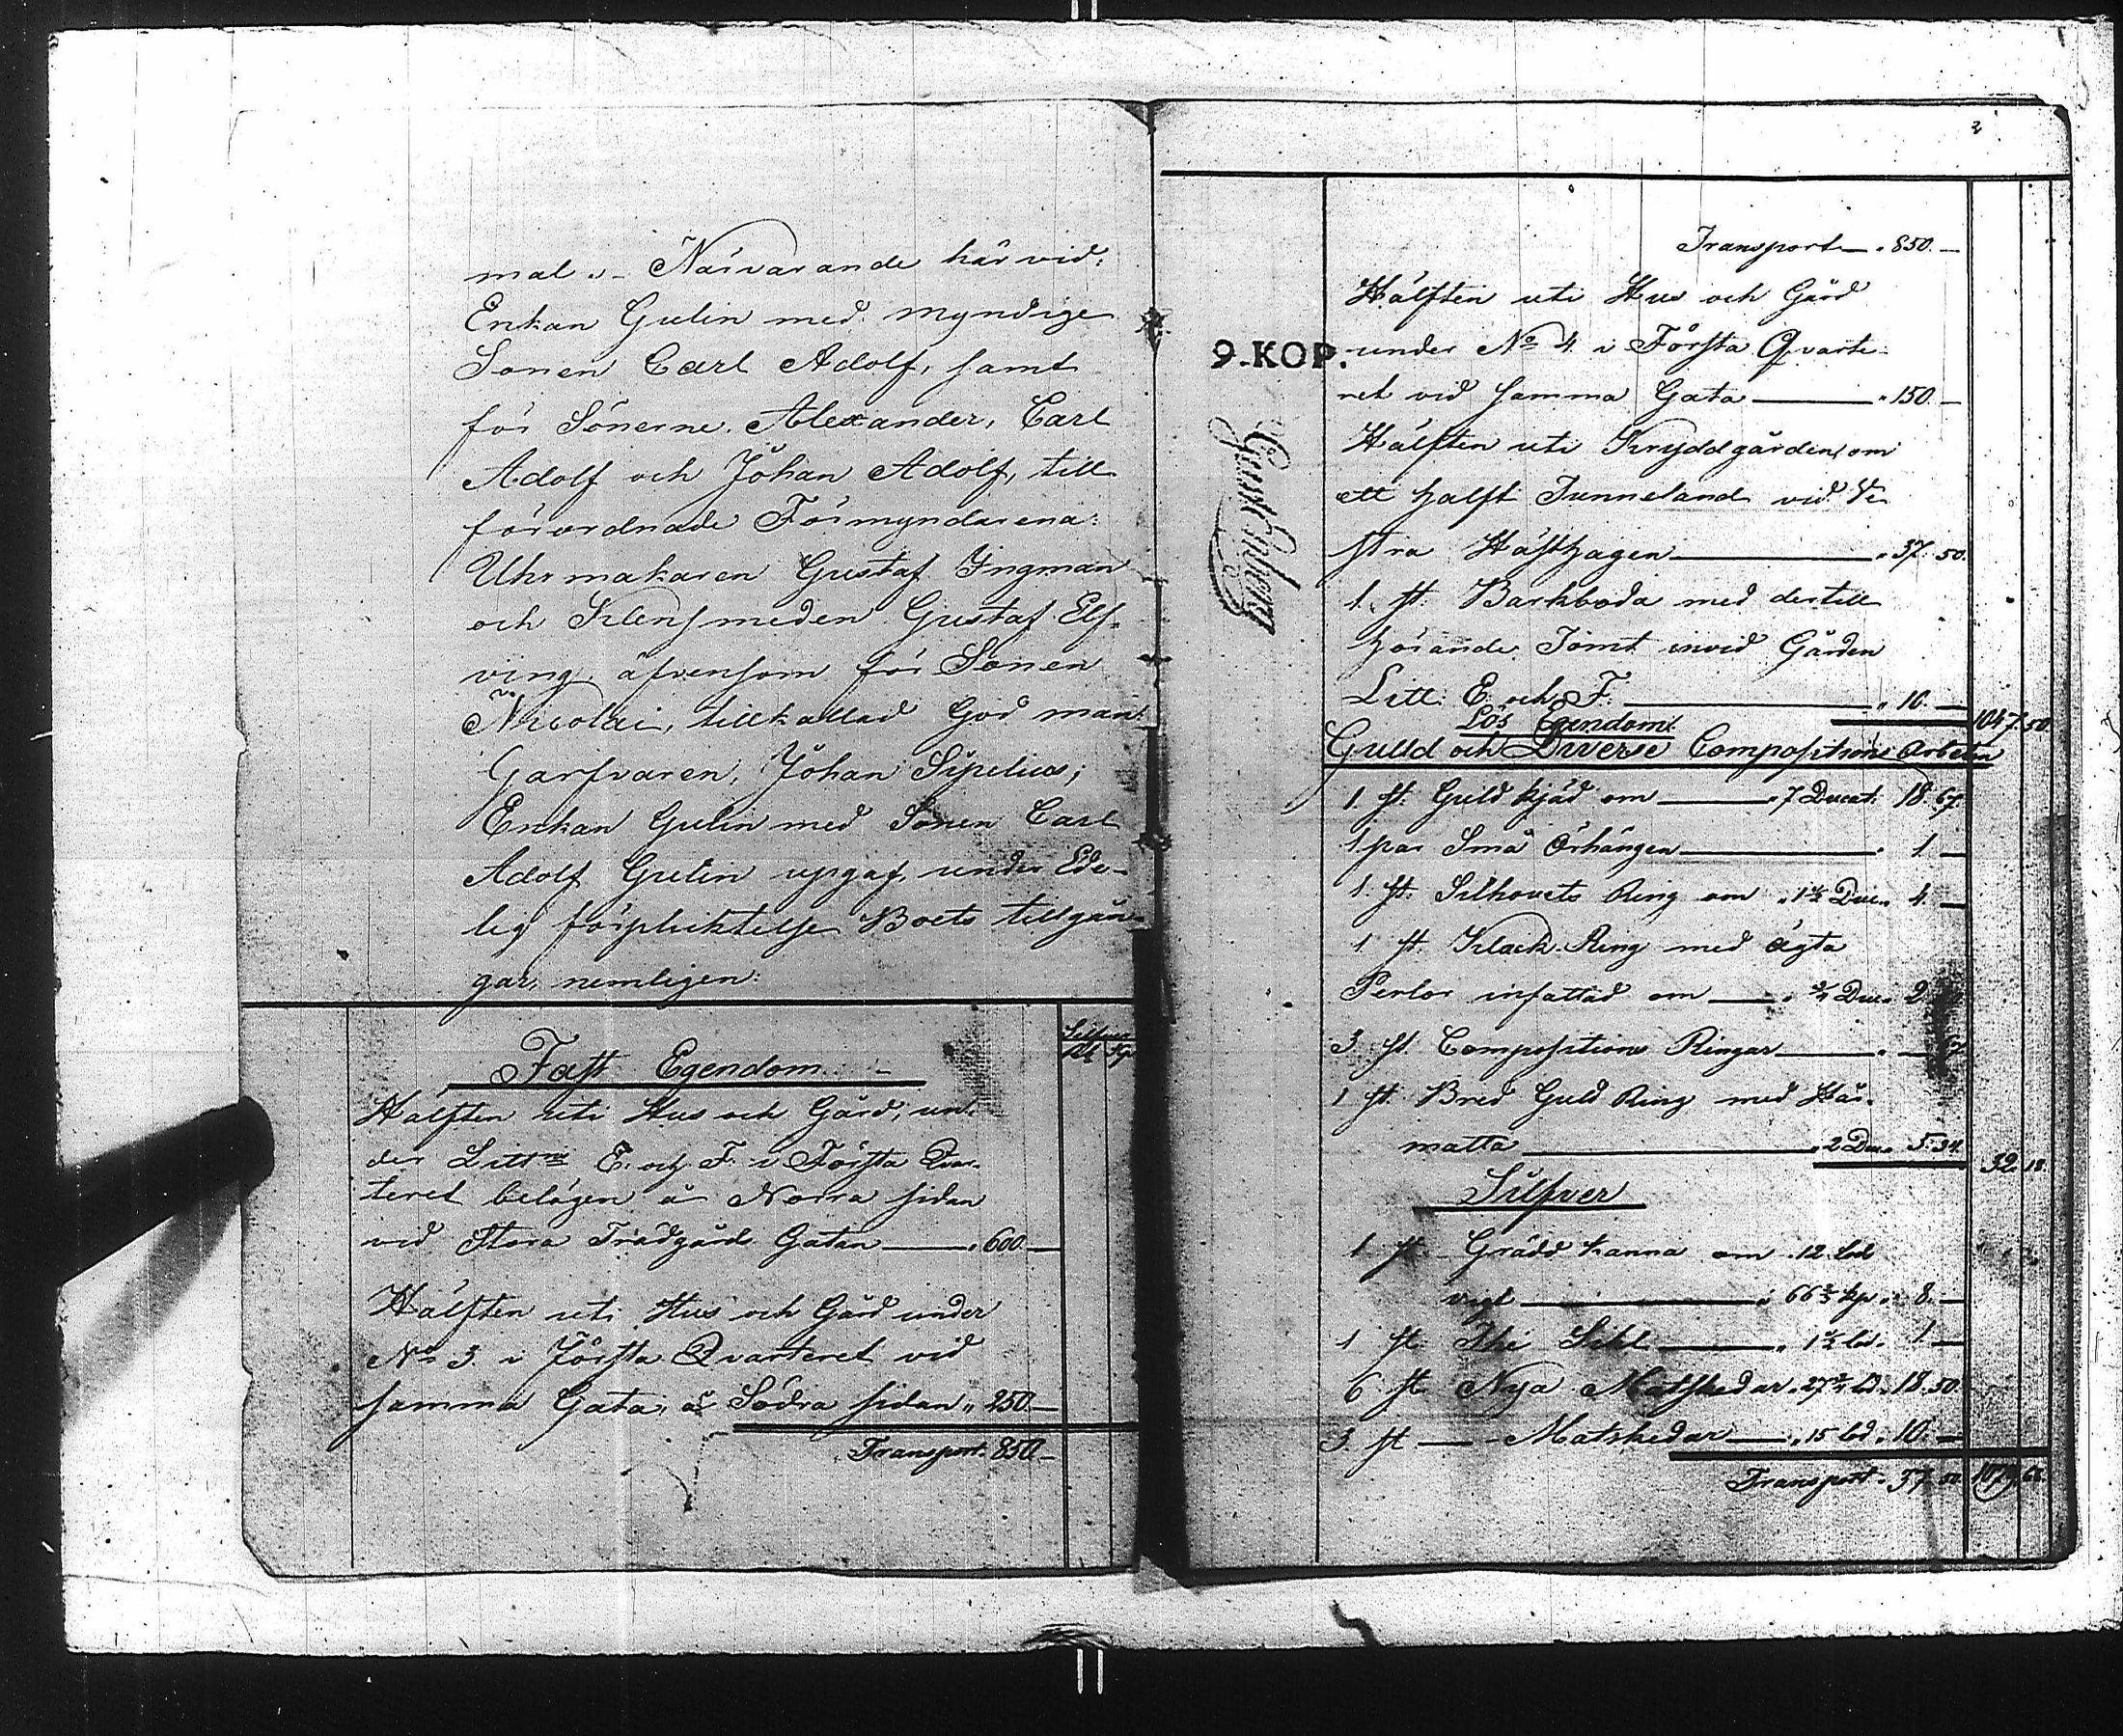 mal. - Närvarande härvid:
Enkan Gulin med myndige
Sonen Carl Adolf, samt
för Sönerne, Alexander, Carl
Adolf och Johan Adolf, till
förordnade Förmyndarena:
Uhrmakaren Gustaf Ingman
och Klensmeden Gustaf Elf-
ving, äfvensom för Sonen
Nicolai, tillkallad God man
Garfvaren, Johan Sipelius;
Enkan Gulin med Sonen Carl
Adolf Gulin upgaf, under Ede-
lig förpliktelse Boets tillgån-
gar, nemligen:
Silfver
Rl Kp
Fast Egendom
Hälften uti Hus och Gård, un-
der Littris E. och F. i Första Qvar-
teret belägen å Norra sidan
vid Stora Trädgårds Gatan " 600. —
Hälften uti Hus och Gård under
No 3 i Första Qvarteret vid
samma Gata, å Södra sidan " 250 —
Transport. 850 —
2
Transport " 850. —
Hälften uti Hus och Gård
9.KOP.
under No 4 i Första Qvarte-
ret vid samma Gata " 150. —
Hälften uti Kryddgården, om
ett halft Tunneland vid Ve-
stra Hästhagen " 37. 50.
1. st. Barkboda med dertill
hörande Tomt invid Gården
Litt. E. och F. " 10. — 1047. 50.
Lös Egendom
Guld och Diverse Compositions Arbeten
1. st. Guld kjäd om " 7 Ducat. 18. 67.
1 par Små Örhängen " 1. —
1. st. Silhouets Ring om " 1½ Duc. 4. —
1 st. Klack Ring med ägta
Perlor infattad om " ¾ Duc. 2.
3 st. Compositions Ringar
1 st. Bred Guld Ring med Hår-
matta " 2 Duc. 5. 34. 32. 18.
Silfver
1 st. Grädd kanna om 12 lod
vigt " 66 ⅔ kp. " 8. —
1 st. The Sikt " 1½ lod. 1 —
6 st. Nya Matskedar. 27¾ lod. 18. 50.
3. st — Matskedar " 15 lod. 10. —
Transport. 37. 50. 1079. 68.